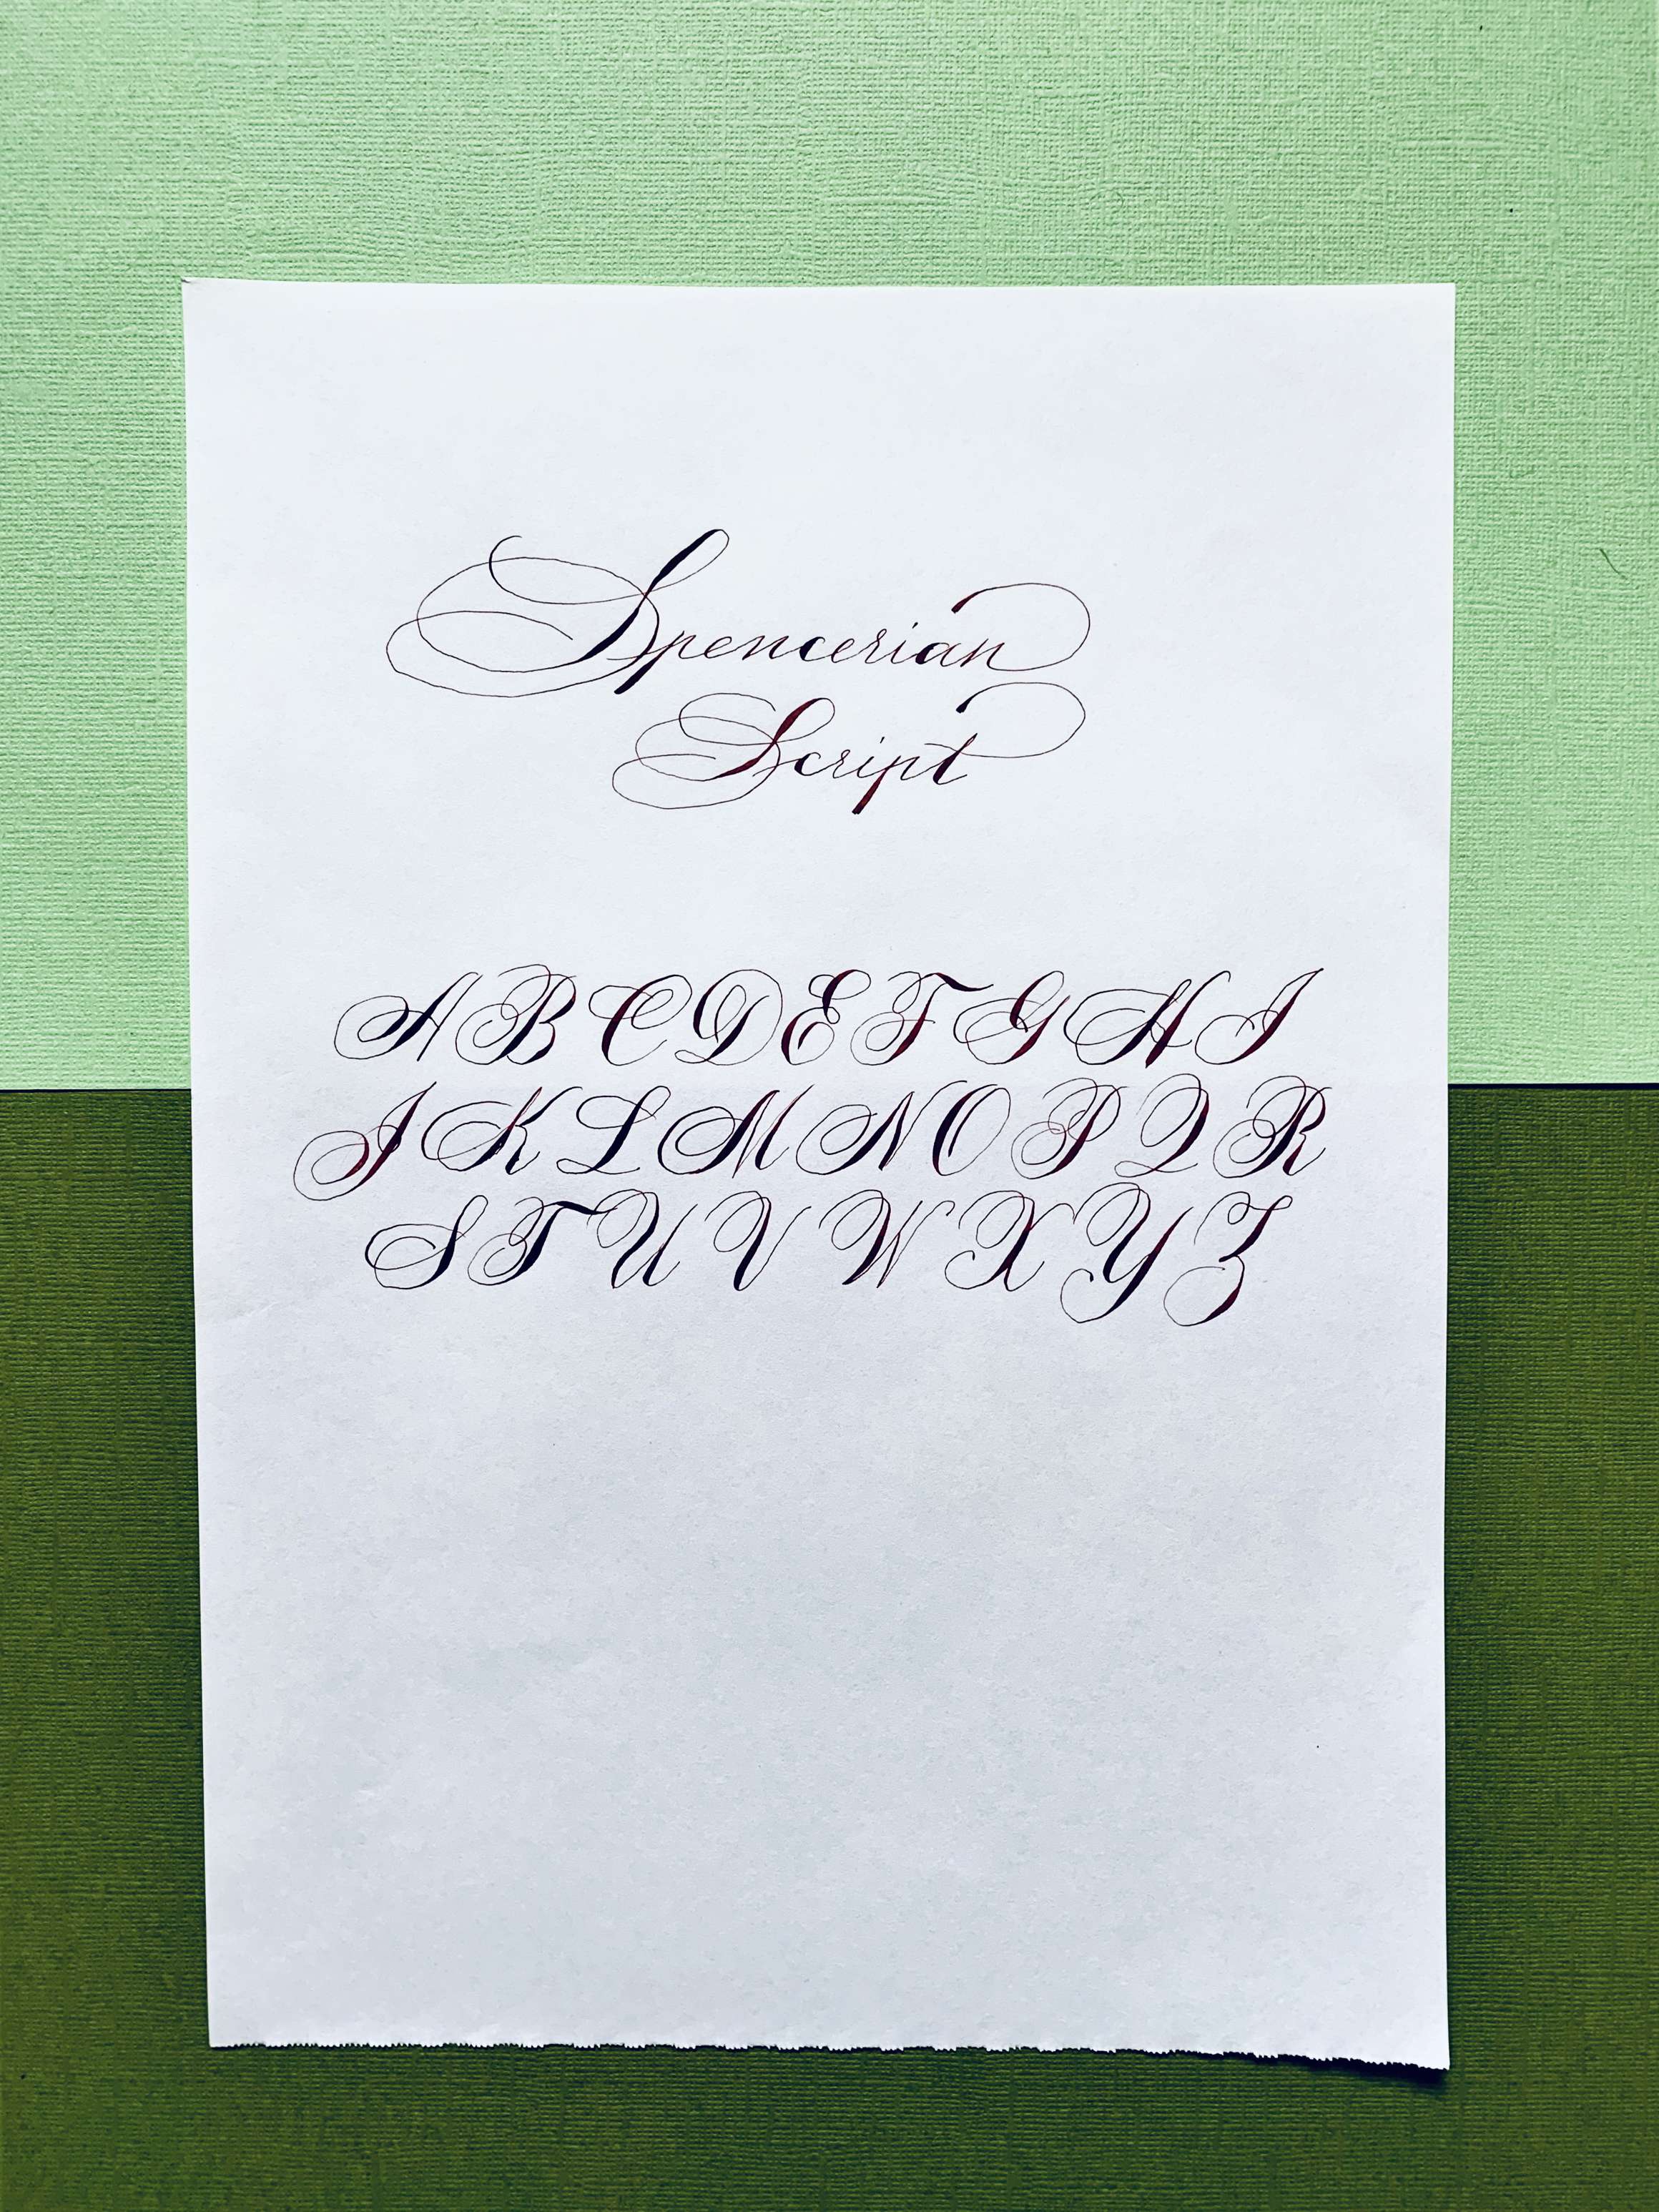 Spencerian
Script
A B C D E F G H I
J K L M N O P Q R
S T U V W X Y Z